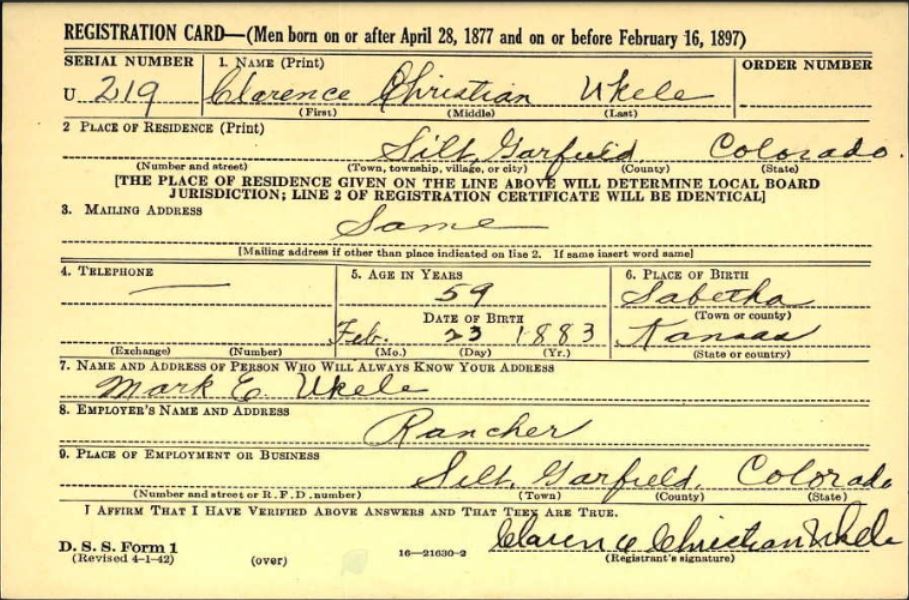 REGISTRATION CARD—(Men born on or after April 28, 1877 and on or before February 16, 1897)
SERIAL NUMBER 1. NAME (Print) ORDER NUMBER
U 219 Clarence Christian Ukele
(First) (Middle) (Last)
2 PLACE OF RESIDENCE (Print)
Silt, Garfield, Colorado.
(Number and street) (Town, township, village, or city) (County) (State)
[THE PLACE OF RESIDENCE GIVEN ON THE LINE ABOVE WILL DETERMINE LOCAL BOARD
JURISDICTION; LINE 2 OF REGISTRATION CERTIFICATE WILL BE IDENTICAL]
3. MAILING ADDRESS
Same
[Mailing address if other than place indicated on line 2. If same insert word same]
4. TELEPHONE 5. AGE IN YEARS 6. PLACE OF BIRTH
— 59 Sabetha
DATE OF BIRTH (Town or county)
Feb. 23 1883 Kansas
(Exchange) (Number) (Mo.) (Day) (Yr.) (State or country)
7. NAME AND ADDRESS OF PERSON WHO WILL ALWAYS KNOW YOUR ADDRESS
Mark E. Ukele
8. EMPLOYER'S NAME AND ADDRESS
Rancher
9. PLACE OF EMPLOYMENT OR BUSINESS
Silt, Garfield, Colorado
(Number and street or R. F. D. number) (Town) (County) (State)
I AFFIRM THAT I HAVE VERIFIED ABOVE ANSWERS AND THAT THEY ARE TRUE.
Clarence Christian Ukele
D. S. S. Form 1 16—21630-2 (Registrant's signature)
(Revised 4-1-42) (over)